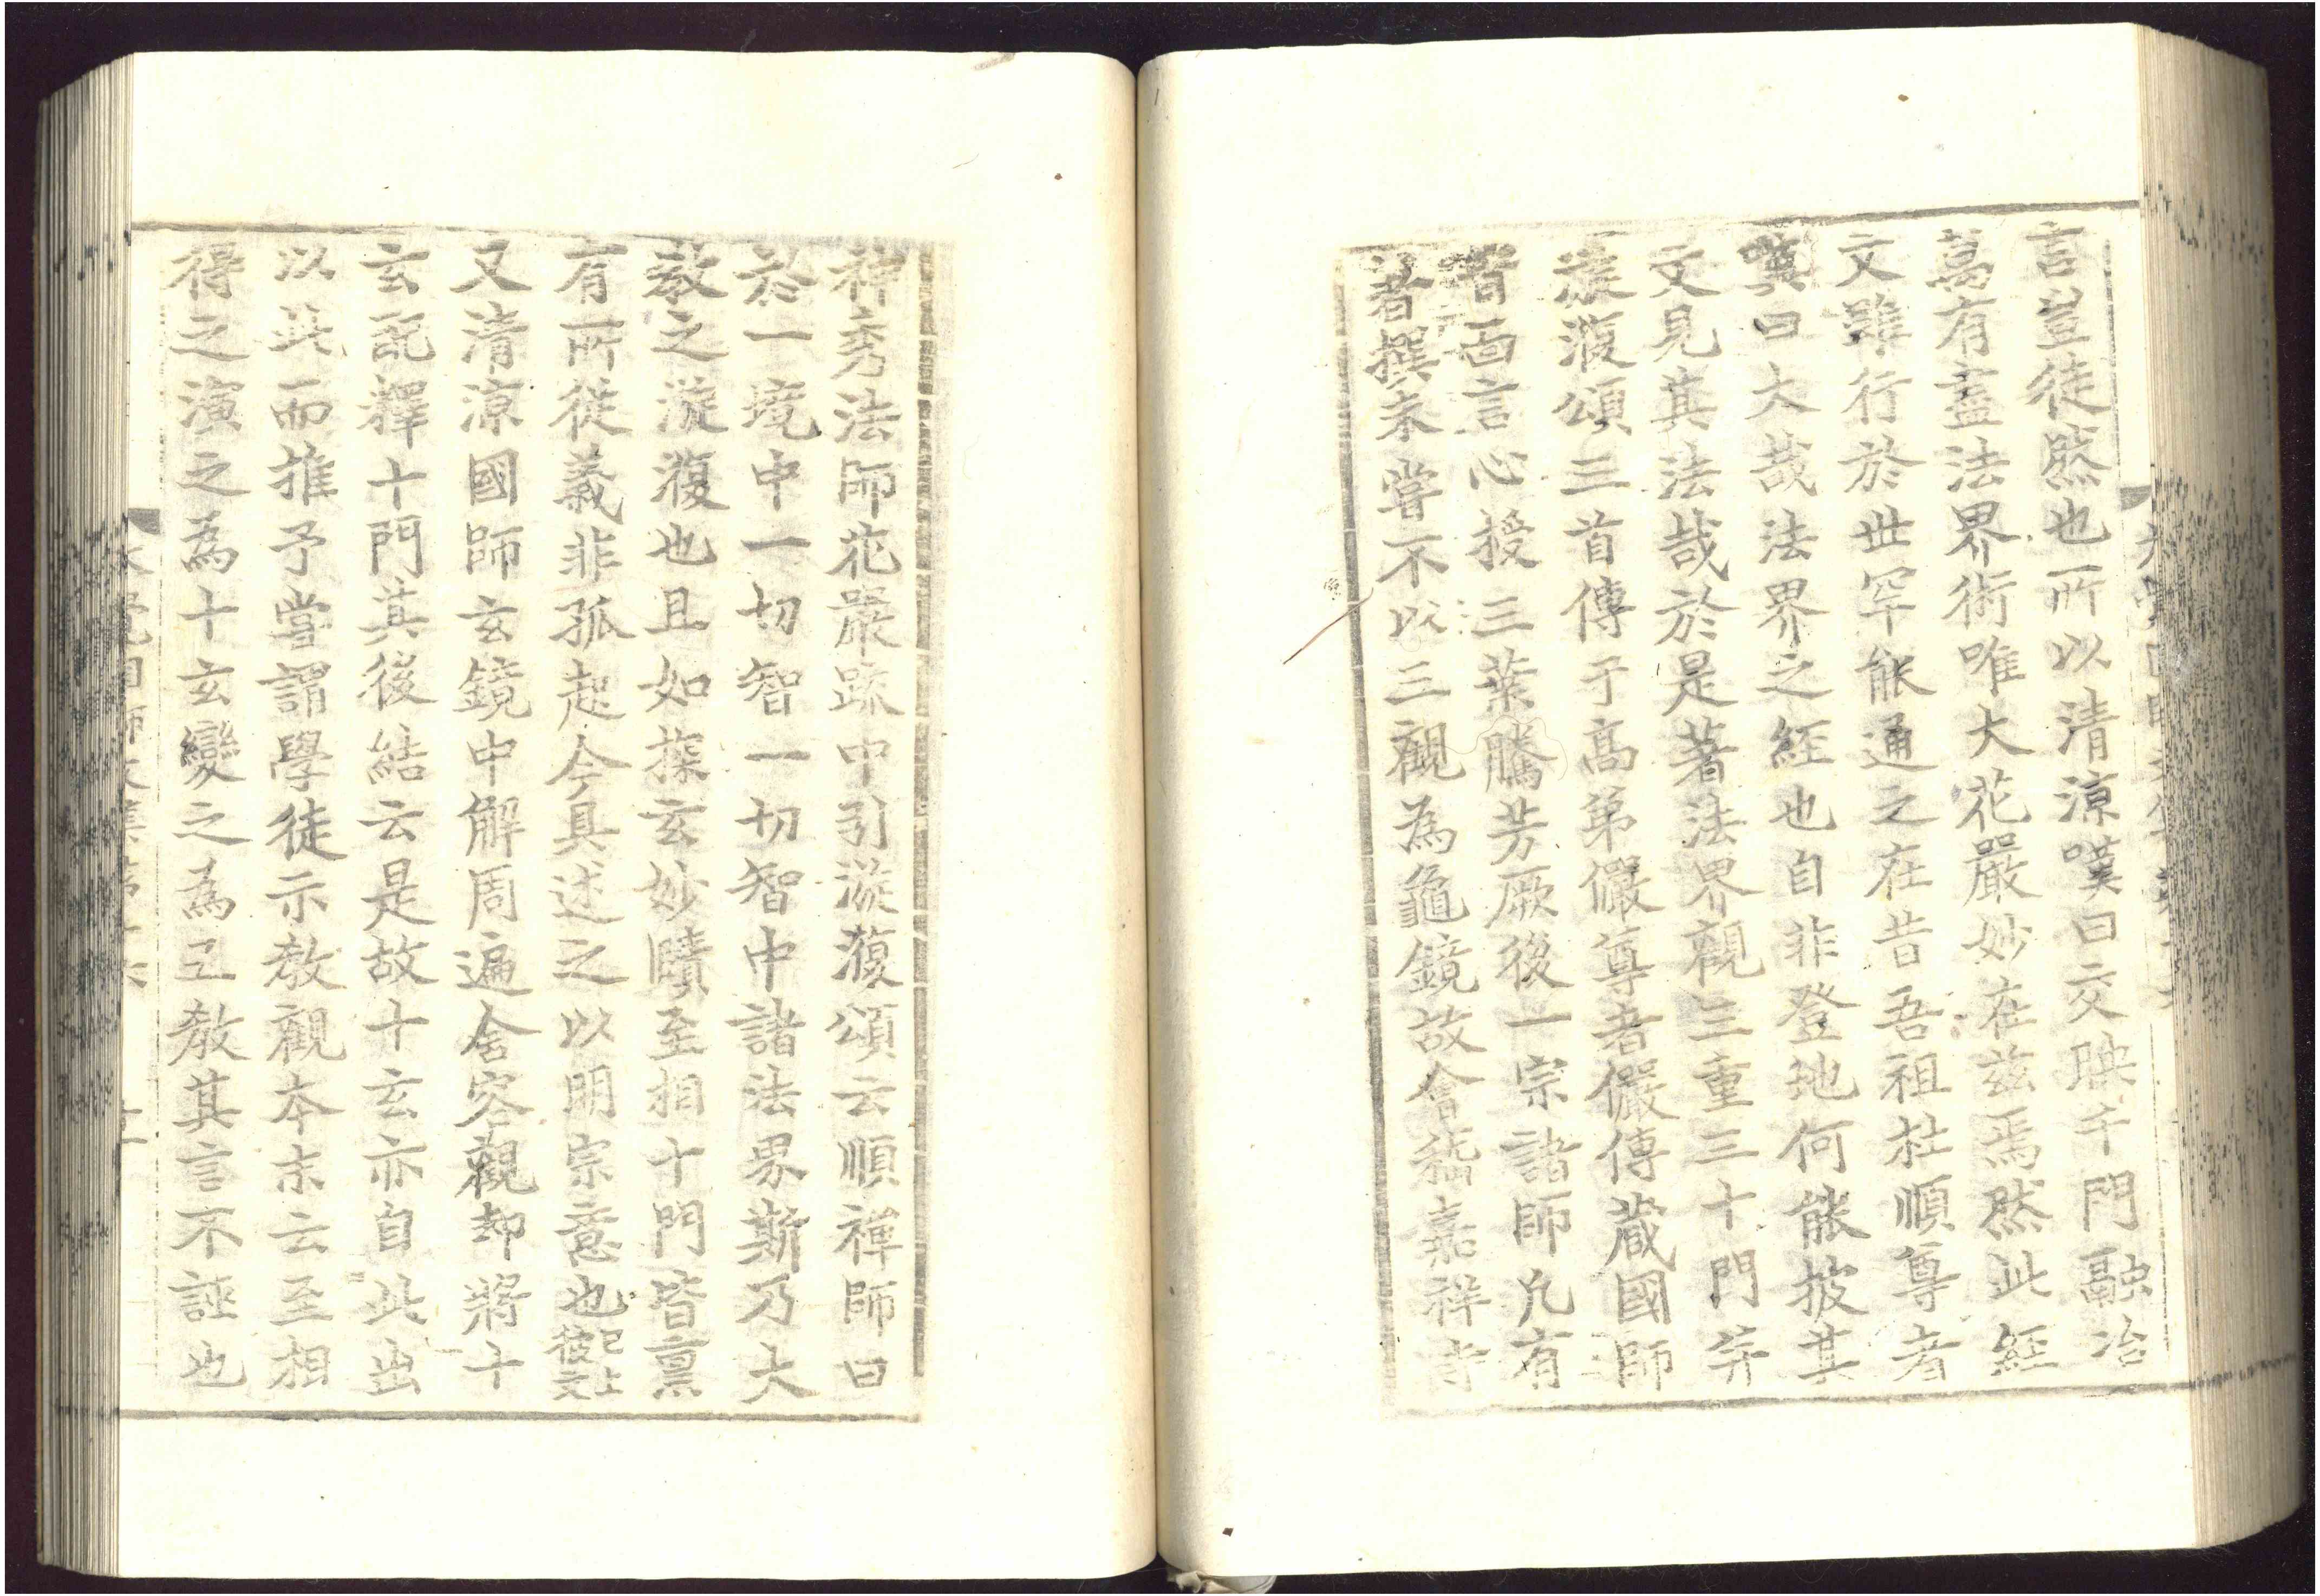 言豈徒然也所以清涼嘆曰交映千門融冶
萬有盡法界術唯大花嚴妙在茲焉然此經
文雖行於世罕能通之在昔吾祖杜順尊者
嘆曰大哉法界之經也自非登地何能披其
文見其法哉於是著法界觀三重三十門并
漩澓頌三首傳于高弟儼尊者儼傳藏國師
皆面言心授三葉騰芳厥後一宗諸師凡有
著撰未嘗不以三觀為龜鏡故會稽嘉祥寺
神秀法師花嚴䟽中引漩澓頌云順禪師曰
於一境中一切智一切智中諸法界斯乃大
教之漩澓也且如探玄妙賾至相十門皆禀
有所從義非孤起今具述之以明宗意也已上彼文
又清涼國師玄鏡中解周遍含容觀却將十
玄配釋十門其後結云是故十玄亦自此出
以此而推予嘗謂學徒示教觀本末云至相
得之演之為十玄變之為五教其言不誣也